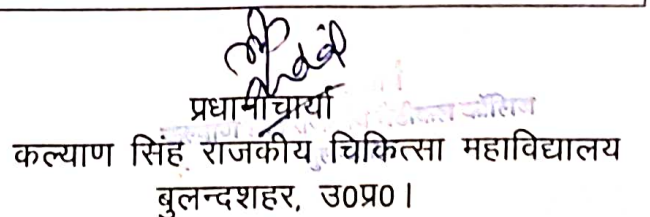 प्रधानाचार्या
कल्याण सिंह राजकीय चिकित्सा महाविद्यालय
बुलन्दशहर, उ0प्र0।